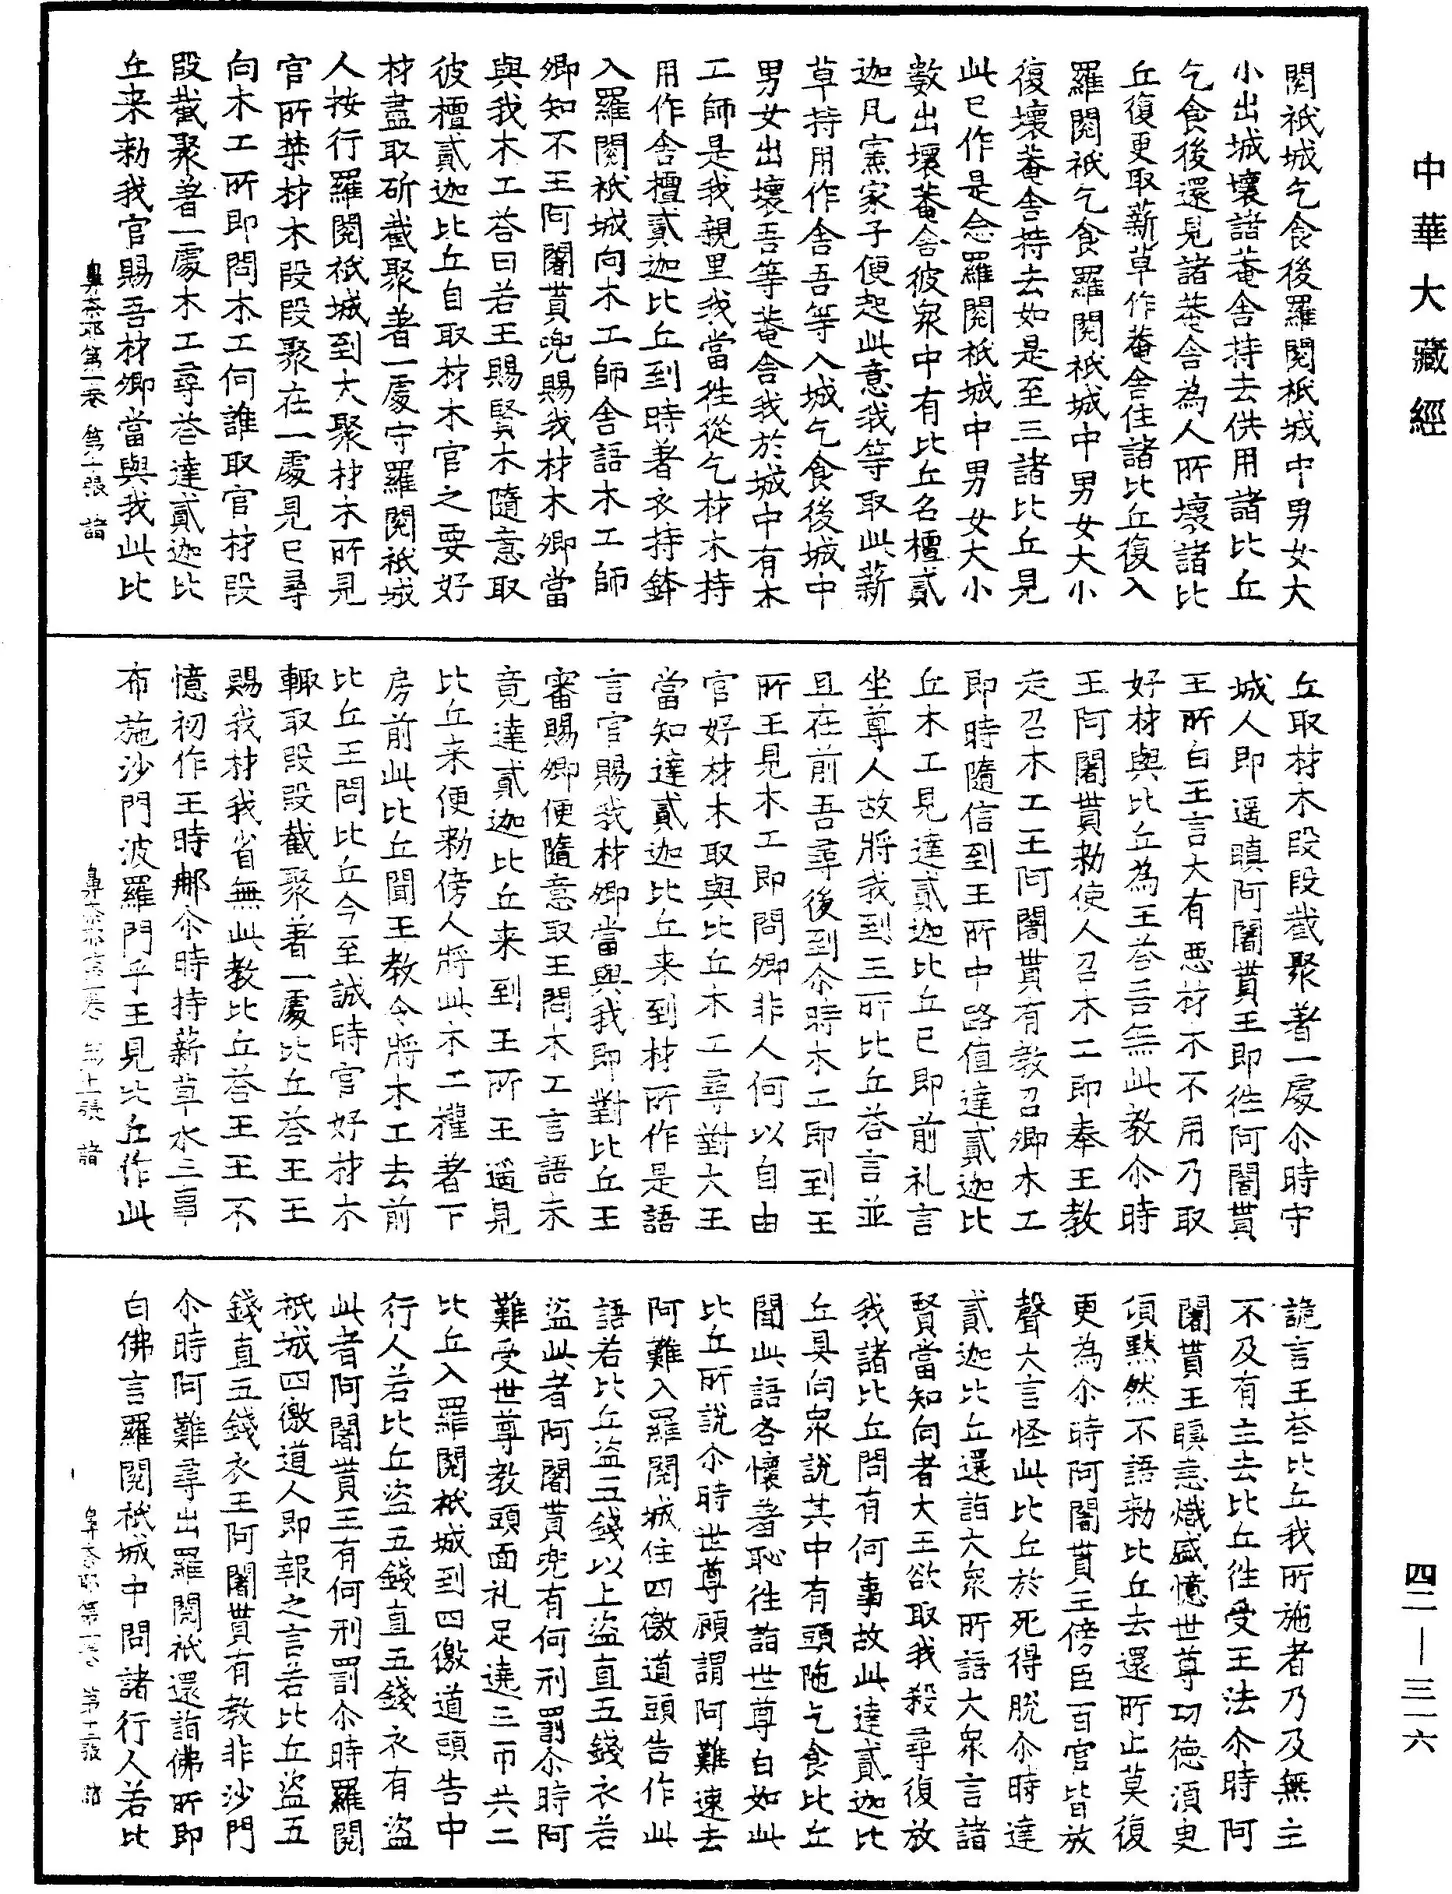 中華大藏經
閱祇城乞食後羅閱祇城中男女大
小出城壞諸菴舍持去供用諸比丘
乞食後還見諸菴舍為人所壞諸比
丘復更取薪草作菴舍住諸比丘復入
羅閱祇乞食羅閱祇城中男女大小
復壞菴舍持去如是至三諸比丘見
此已作是念羅閱祇城中男女大小
數出壞菴舍彼眾中有比丘名檀貳
迦凡窯家子便起此意我等取此薪
草持用作舍吾等入城乞食後城中
男女出壞吾等菴舍我於城中有木
工師是我親里我當往從乞材木持
用作舍檀貳迦比丘到時著衣持鉢
入羅閱祇城向木工師舍語木工師
卿知不王阿闍貰兜賜我材木卿當
與我木工荅曰若王賜賢木隨意取
彼檀貳迦比丘自取材木官之要好
材盡取斫截聚著一處守羅閱祇城
人按行羅閱祇城到大聚材木所見
官所禁材木段段聚在一處見已尋
向木工所即問木工何誰取官材段
段截聚著一處木工尋荅達貳迦比
丘来勑我官賜吾材卿當與我此比
鼻奈耶第一卷 第十張 諸
丘取材木段段截聚著一處尒時守
城人即遥瞋阿闍貰王即徃阿闍貰
王所白王言大有惡材木不用乃取
好材與比丘為王荅言無此教尒時
王阿闍貰勑使人召木工即奉王教
走召木工王阿闍貰有教召卿木工
即時隨信到王所中路值達貳迦比
丘木工見達貳迦比丘已即前礼言
坐尊人故將我到王所比丘荅言並
且在前吾尋後到尒時木工即到王
所王見木工即問卿非人何以自由
官好材木取與比丘木工尋對大王
當知達貳迦比丘来到材所作是語
言官賜我材卿當與我即對比丘王
審賜卿便隨意取王問木工言語未
竟達貳迦比丘来到王所王遥見
比丘来便勑傍人將此木工權著下
房前此比丘聞王教令將木工去前
比丘王問比丘今至誠時官好材木
輙取段段截聚著一處比丘荅王王
賜我材我省無此教比丘荅王王不
憶初作王時那尒時持薪草水三事
布施沙門波羅門乎王見比丘作此
鼻奈耶第一卷 第十一張 諸
詭言王荅比丘我所施者乃及無主
不及有主去比丘徃受王法尒時阿
闍貰王瞋恚熾盛憶世尊功德須臾
頃黙然不語勑比丘去還所止莫復
更為尒時阿闍貰王傍臣百官皆放
聲大言怪此比丘於死得脫尒時達
貳迦比丘還詣大眾所語大眾言諸
賢當知向者大王欲取我殺尋復放
我諸比丘問有何事故此達貳迦比
丘具向眾說其中有頭陁乞食比丘
聞此語各懷著恥徃詣世尊白如此
比丘所說尒時世尊顧謂阿難速去
阿難入羅閱城住四徼道頭告作此
語若比丘盜五錢以上盜直五錢衣若
盜此者阿闍貰兜有何刑罰尒時阿
難受世尊教頭面礼足遶三帀共二
比丘入羅閱祇城到四徼道頭告中
行人若比丘盜五錢直五錢衣有盜
此者阿闍貰王有何刑罰尒時羅閱
祇城四徼道人即報之言若比丘盜五
錢直五錢衣王阿闍貰有教非沙門
尒時阿難尋出羅閱祇還詣佛所即
白佛言羅閱祇城中問諸行人若比
鼻奈耶第一卷 第十二張 諸
四二—三一六